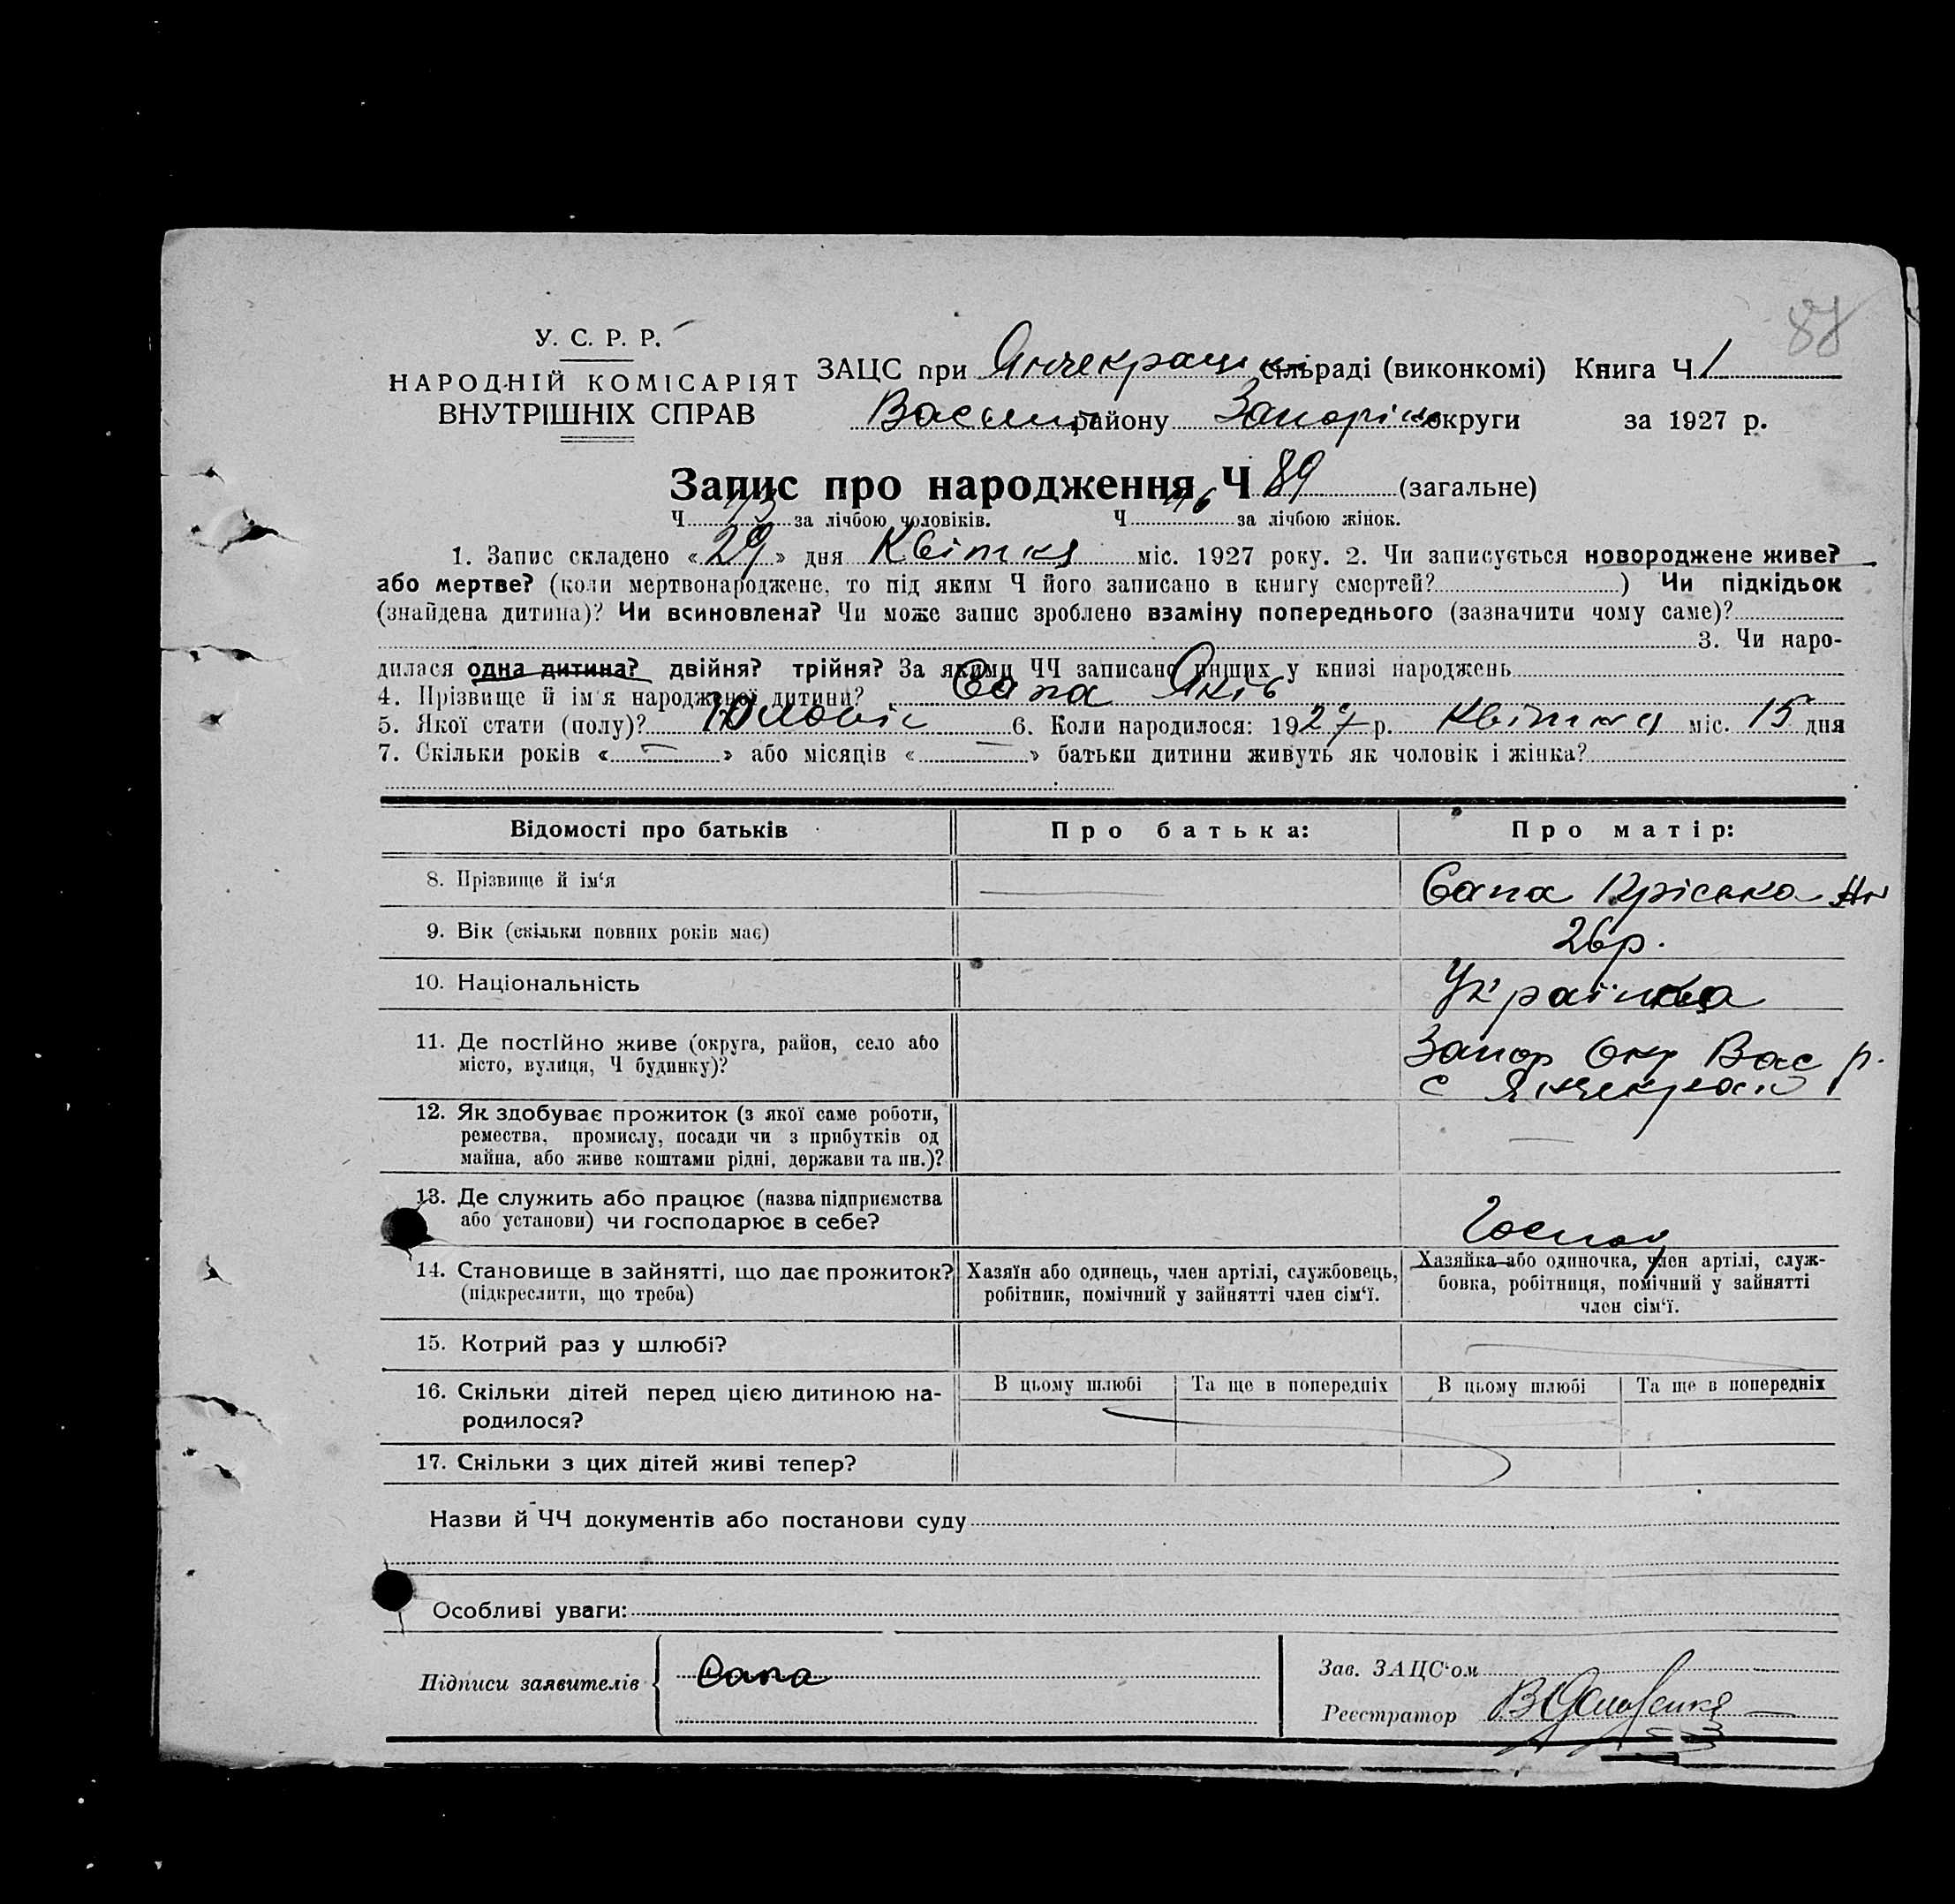 88
У. С. Р. Р.
НАРОДНІЙ КОМІСАРІЯТ
ВНУТРІШНІХ СПРАВ
ЗАЦС при Янчекрацк сільраді (виконкомі) Книга Ч 1
Васили району Запоріж округи за 1927 р.
Запис про народження Ч 89 (загальне)
Ч за лічбою чоловіків. Ч 46 за лічбою жінок.
1. Запис складено « 29 » дня Квітня міс. 1927 року. 2. Чи записується новороджене живе?
або мертве? (коли мертвонароджене, то під яким Ч його записано в книгу смертей? ) Чи підкідьок
(знайдена дитина)? Чи всиновлена? Чи може запис зроблено взаміну попереднього (зазначити чому саме)?
3. Чи наро-
дилася одна дитина? двійня? трійня? За якими ЧЧ записано инших у книзі народжень
4. Прізвище й ім'я народженої дитини? Сапа Яків
5. Якої стати (полу)? Чоловіч 6. Коли народилося: 1927 р. Квітня міс. 15 дня
7. Скільки років « — » або місяців « — » батьки дитини живуть як чоловік і жінка?
Відомості про батьків Про батька: Про матір:
8. Прізвище й ім'я Сапа Пріська
9. Вік (скільки повних років має) 26 р.
10. Національність Українка
11. Де постійно живе (округа, район, село або Запор Окр Вас р.
місто, вулиця, Ч будинку)? с Янчекрак
12. Як здобуває прожиток (з якої саме роботи,
ремества, промислу, посади чи з прибутків од
майна, або живе коштами рідні, держави та ин.)?
13. Де служить або працює (назва підприємства
або установи) чи господарює в себе? Господ
14. Становище в зайнятті, що дає прожиток? Хазяїн або одинець, член артілі, службовець, Хазяйка або одиночка, член артілі, служ-
(підкреслити, що треба) робітник, помічний у зайнятті член сім'ї. бовка, робітниця, помічний у зайнятті
член сім'ї.
15. Котрий раз у шлюбі?
16. Скільки дітей перед цією дитиною на- В цьому шлюбі Та ще в попередніх В цьому шлюбі Та ще в попередніх
родилося?
17. Скільки з цих дітей живі тепер?
Назви й ЧЧ документів або постанови суду
Особливі уваги:
Підписи заявителів Сапа
Зав. ЗАЦС'ом
Реєстратор